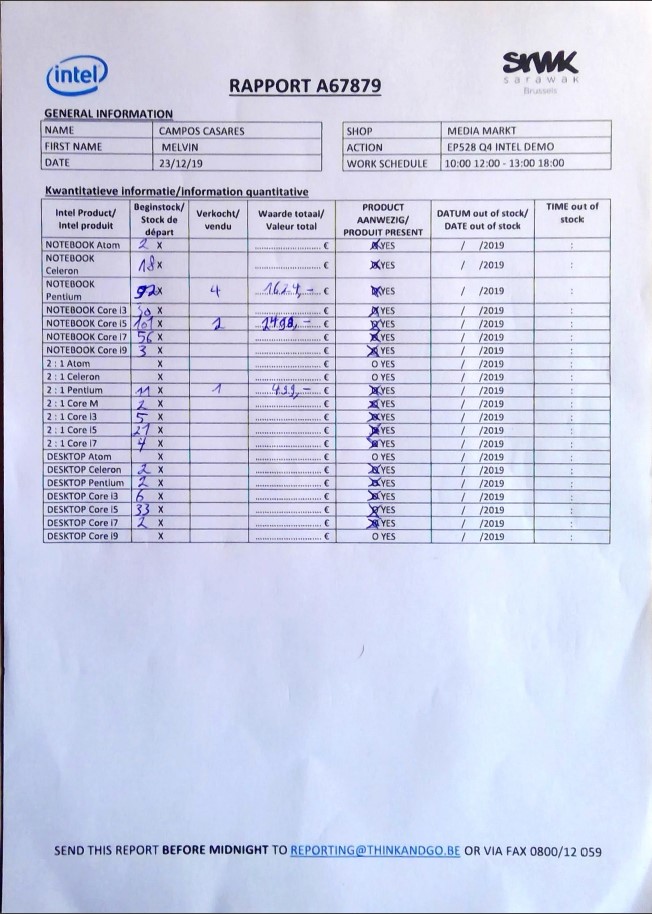 intel
SRWK
sarawak
Brussels
RAPPORT A67879
GENERAL INFORMATION
NAME CAMPOS CASARES
FIRST NAME MELVIN
DATE 23/12/19
SHOP MEDIA MARKT
ACTION EP528 Q4 INTEL DEMO
WORK SCHEDULE 10:00 12:00 - 13:00 18:00
Kwantitatieve informatie/information quantitative
Intel Product/ Intel produit Beginstock/ Stock de départ Verkocht/ vendu Waarde totaal/ Valeur total PRODUCT AANWEZIG/ PRODUIT PRESENT DATUM out of stock/ DATE out of stock TIME out of stock
NOTEBOOK Atom 2 x € YES / /2019 :
NOTEBOOK Celeron 18 x € YES / /2019 :
NOTEBOOK Pentium 92 x 4 1624,- € YES / /2019 :
NOTEBOOK Core I3 30 X € YES / /2019 :
NOTEBOOK Core I5 101 X 2 2498,- € YES / /2019 :
NOTEBOOK Core I7 56 X € YES / /2019 :
NOTEBOOK Core I9 3 X € YES / /2019 :
2 : 1 Atom X € O YES / /2019 :
2 : 1 Celeron X € O YES / /2019 :
2 : 1 Pentium 11 X 1 499,- € YES / /2019 :
2 : 1 Core M 2 X € YES / /2019 :
2 : 1 Core I3 5 X € YES / /2019 :
2 : 1 Core I5 21 X € YES / /2019 :
2 : 1 Core I7 4 X € YES / /2019 :
DESKTOP Atom X € O YES / /2019 :
DESKTOP Celeron 2 X € YES / /2019 :
DESKTOP Pentium 2 X € YES / /2019 :
DESKTOP Core I3 6 X € YES / /2019 :
DESKTOP Core I5 33 X € YES / /2019 :
DESKTOP Core I7 2 X € YES / /2019 :
DESKTOP Core I9 X € O YES / /2019 :
SEND THIS REPORT BEFORE MIDNIGHT TO REPORTING@THINKANDGO.BE OR VIA FAX 0800/12 059